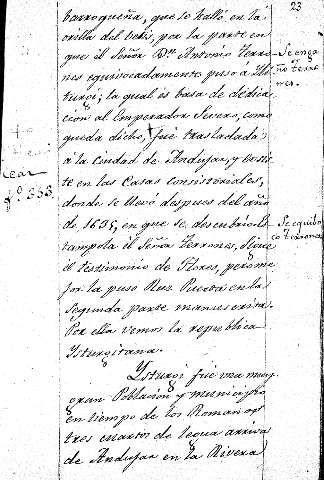 23
barroqueña, que se halló en la
orilla del betis, por la parte en
que el Señor Dn. Antonio Terro-
nes equivocadamente puso á Ili-
turgi; la qual és basa de dedica-
cion al Emperador Severo, como
queda dicho, fué trasladada
á la ciudad de Andujar, y ecsis-
te en las Casas consistoriales,
donde se llevó despues del año
de 1635, en que se descubrió. Es-
tampola el Señor Terrones, sigue
el testimonio de Flores, pe
jor la puso Ruz Puerta en la
segunda parte manuscrita.
Por ella vemos la republica
Ysturgitana.
Ysturgi fué una muy
gran Poblacion y municipio
en tiempo de los Romanos
tres cuartos de legua arriva
de Andujar en la Rivera
Se enga
ñó Terro
nes.
Se equibo
có Terrones
fo. 353